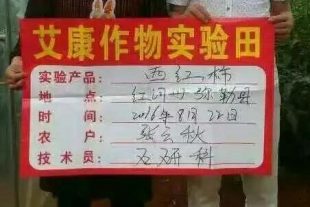 艾康作物实验田
实验产品: 西红柿
地 点: 红河州弥勒县
时 间: 2016年8月22日
农 户: 张云秋
技 术 员: 石研科